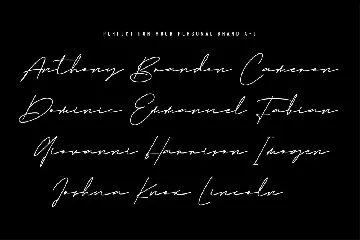 PERFECT FOR YOUR PERSONAL BRAND
Anthony Branden Cameron
Dominic Emmanuel Fabian
Giovanni Harrison Imogen
Joshua Knox Lincoln